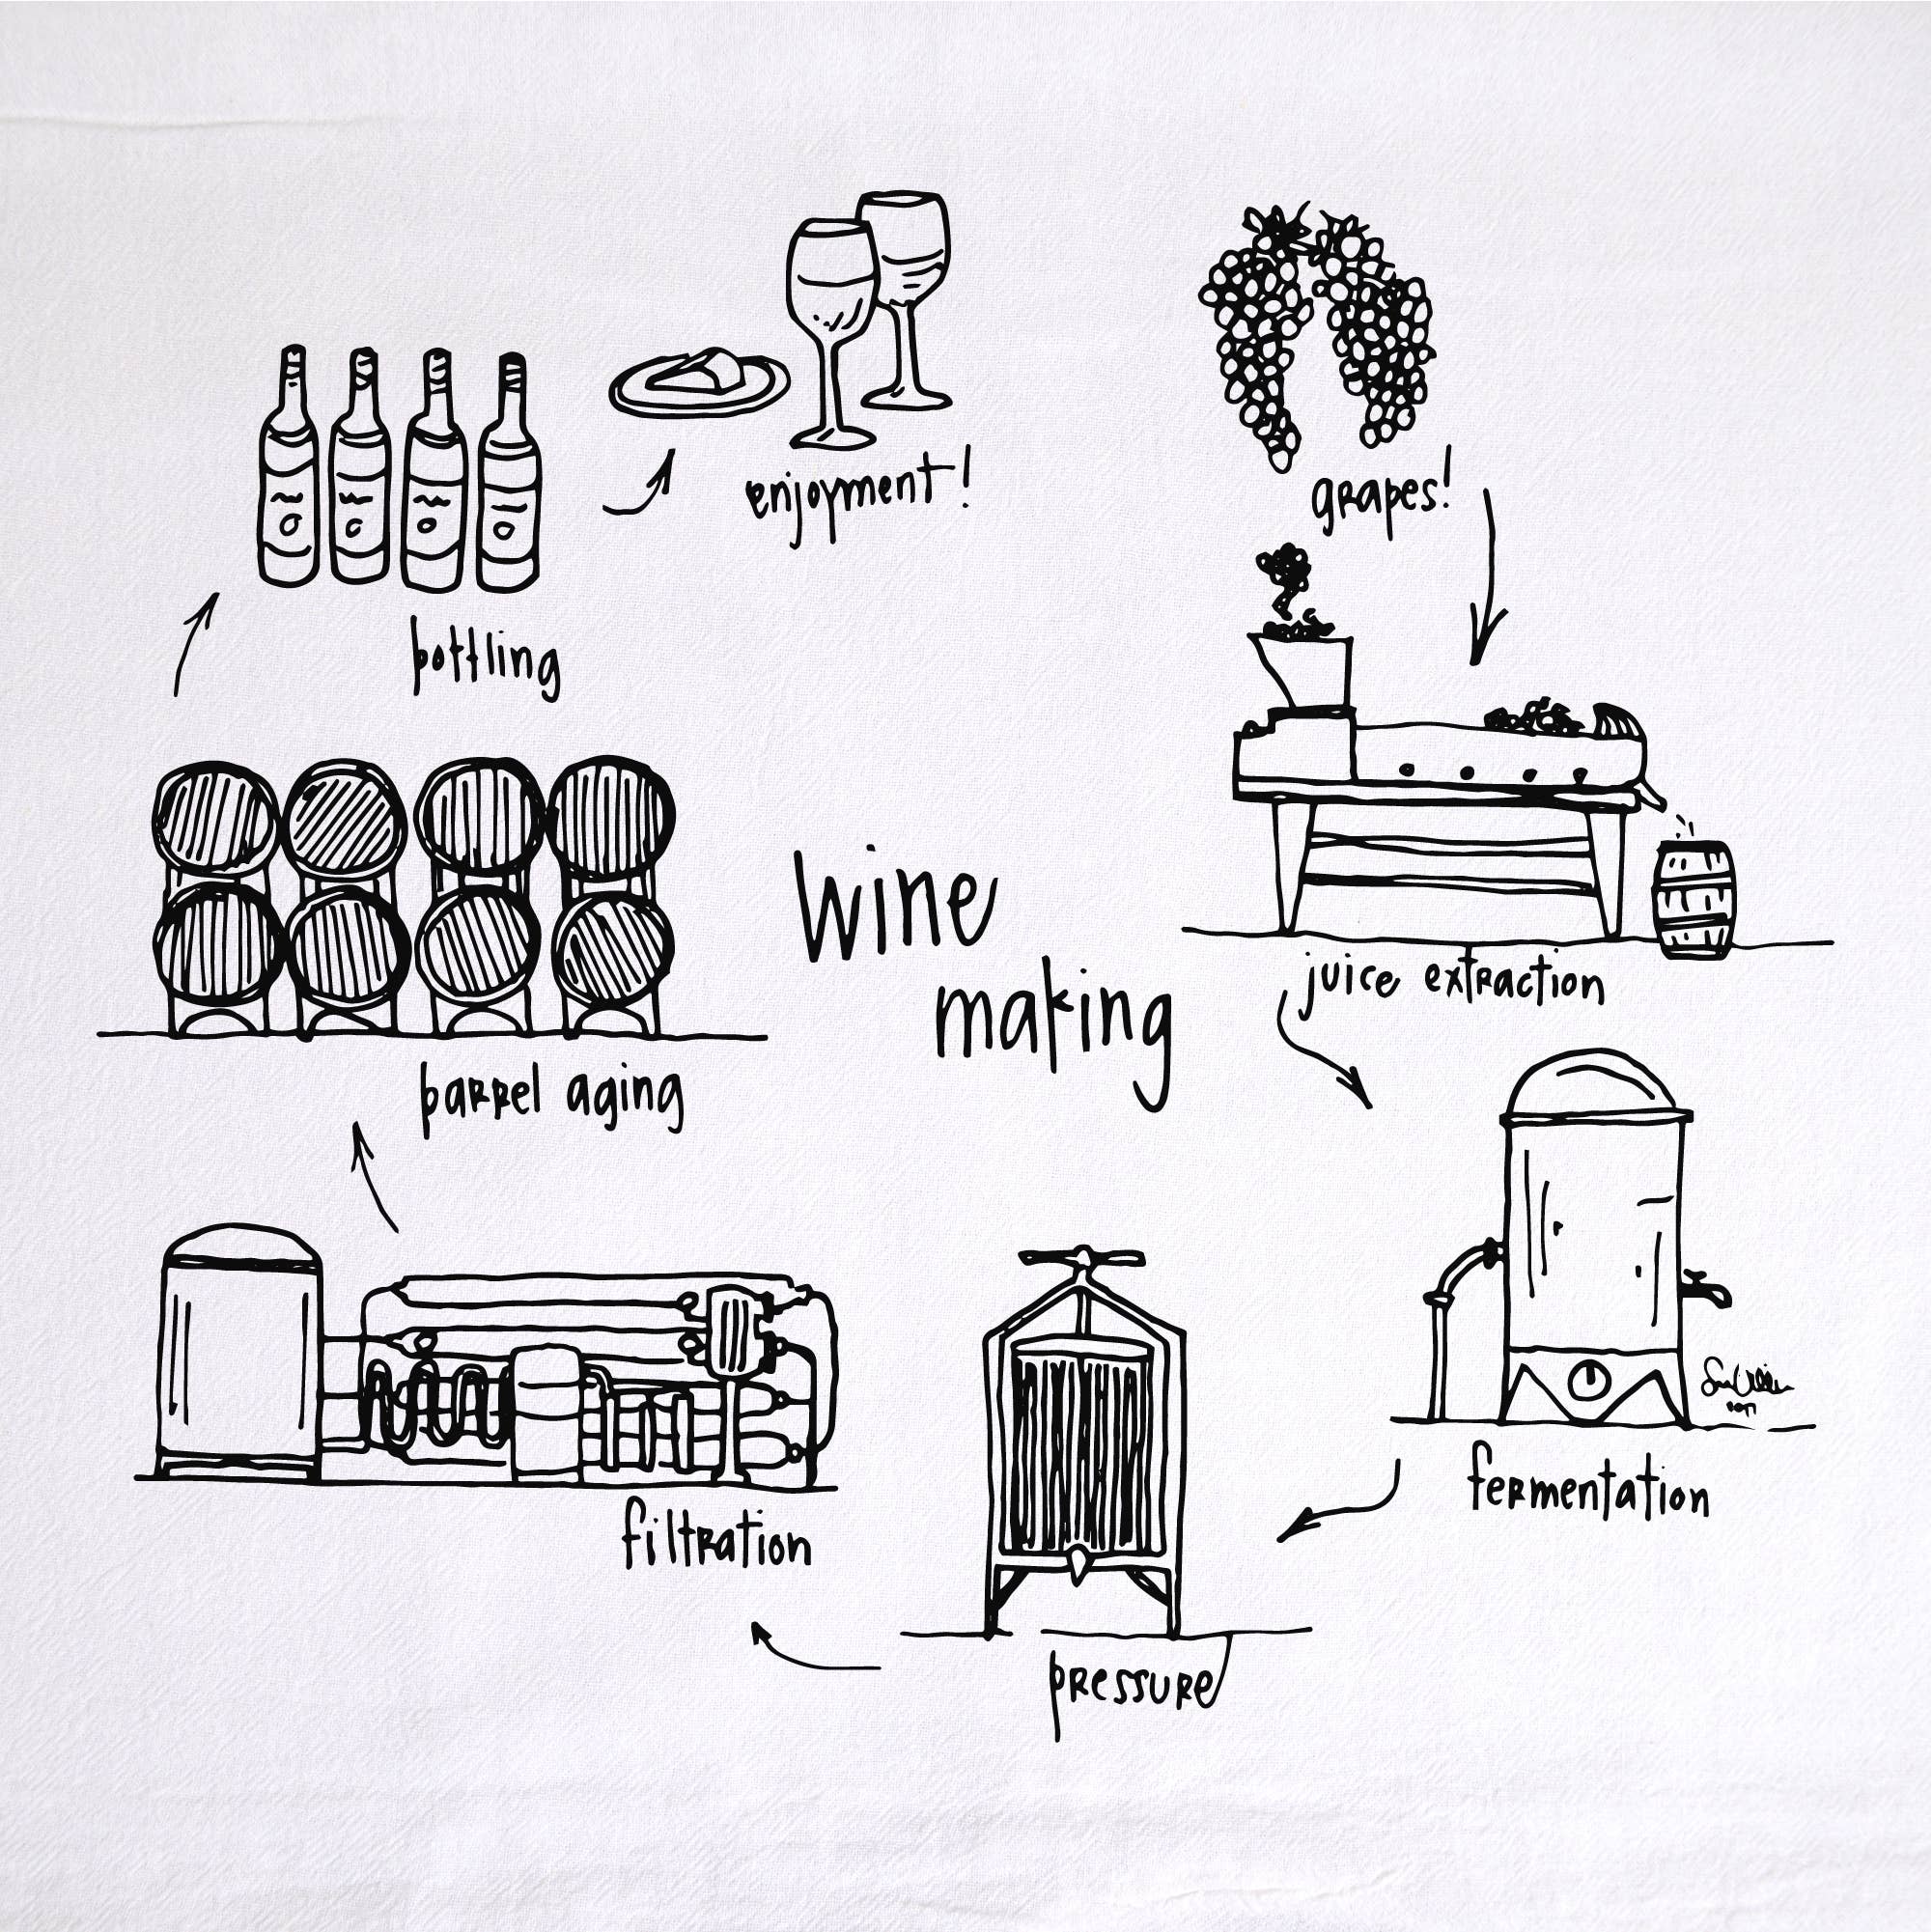 enjoyment!
grapes!
bottling
wine
making
juice extraction
barrel aging
fermentation
filtration
pressure